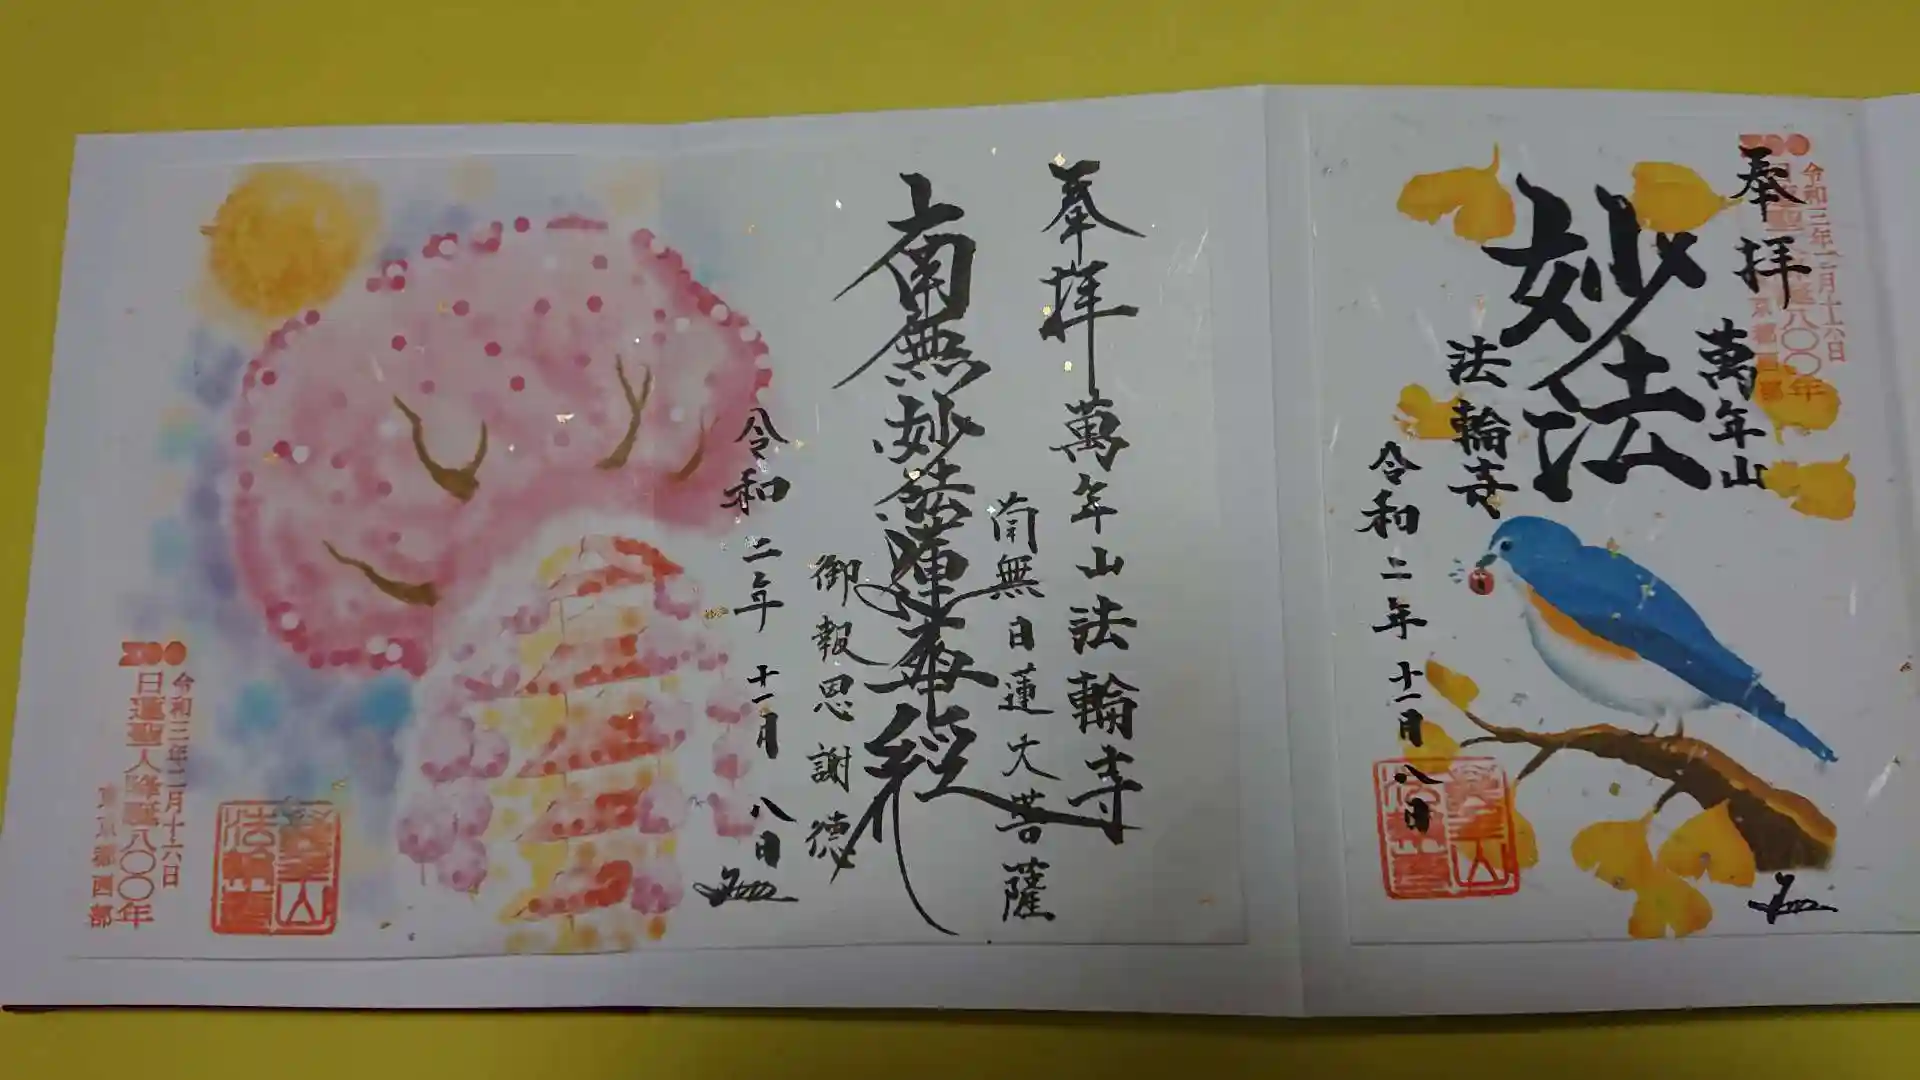 奉拝
萬年山
妙法
法輪寺
令和二年十一月八日
令和三年二月十六日
日蓮聖人降誕八〇〇年
東京都西部
奉拝
萬年山法輪寺
南無日蓮大菩薩
南無妙法蓮華経
御報恩謝徳
令和二年十一月八日
令和三年二月十六日
日蓮聖人降誕八〇〇年
東京都西部
萬年山
法輪寺